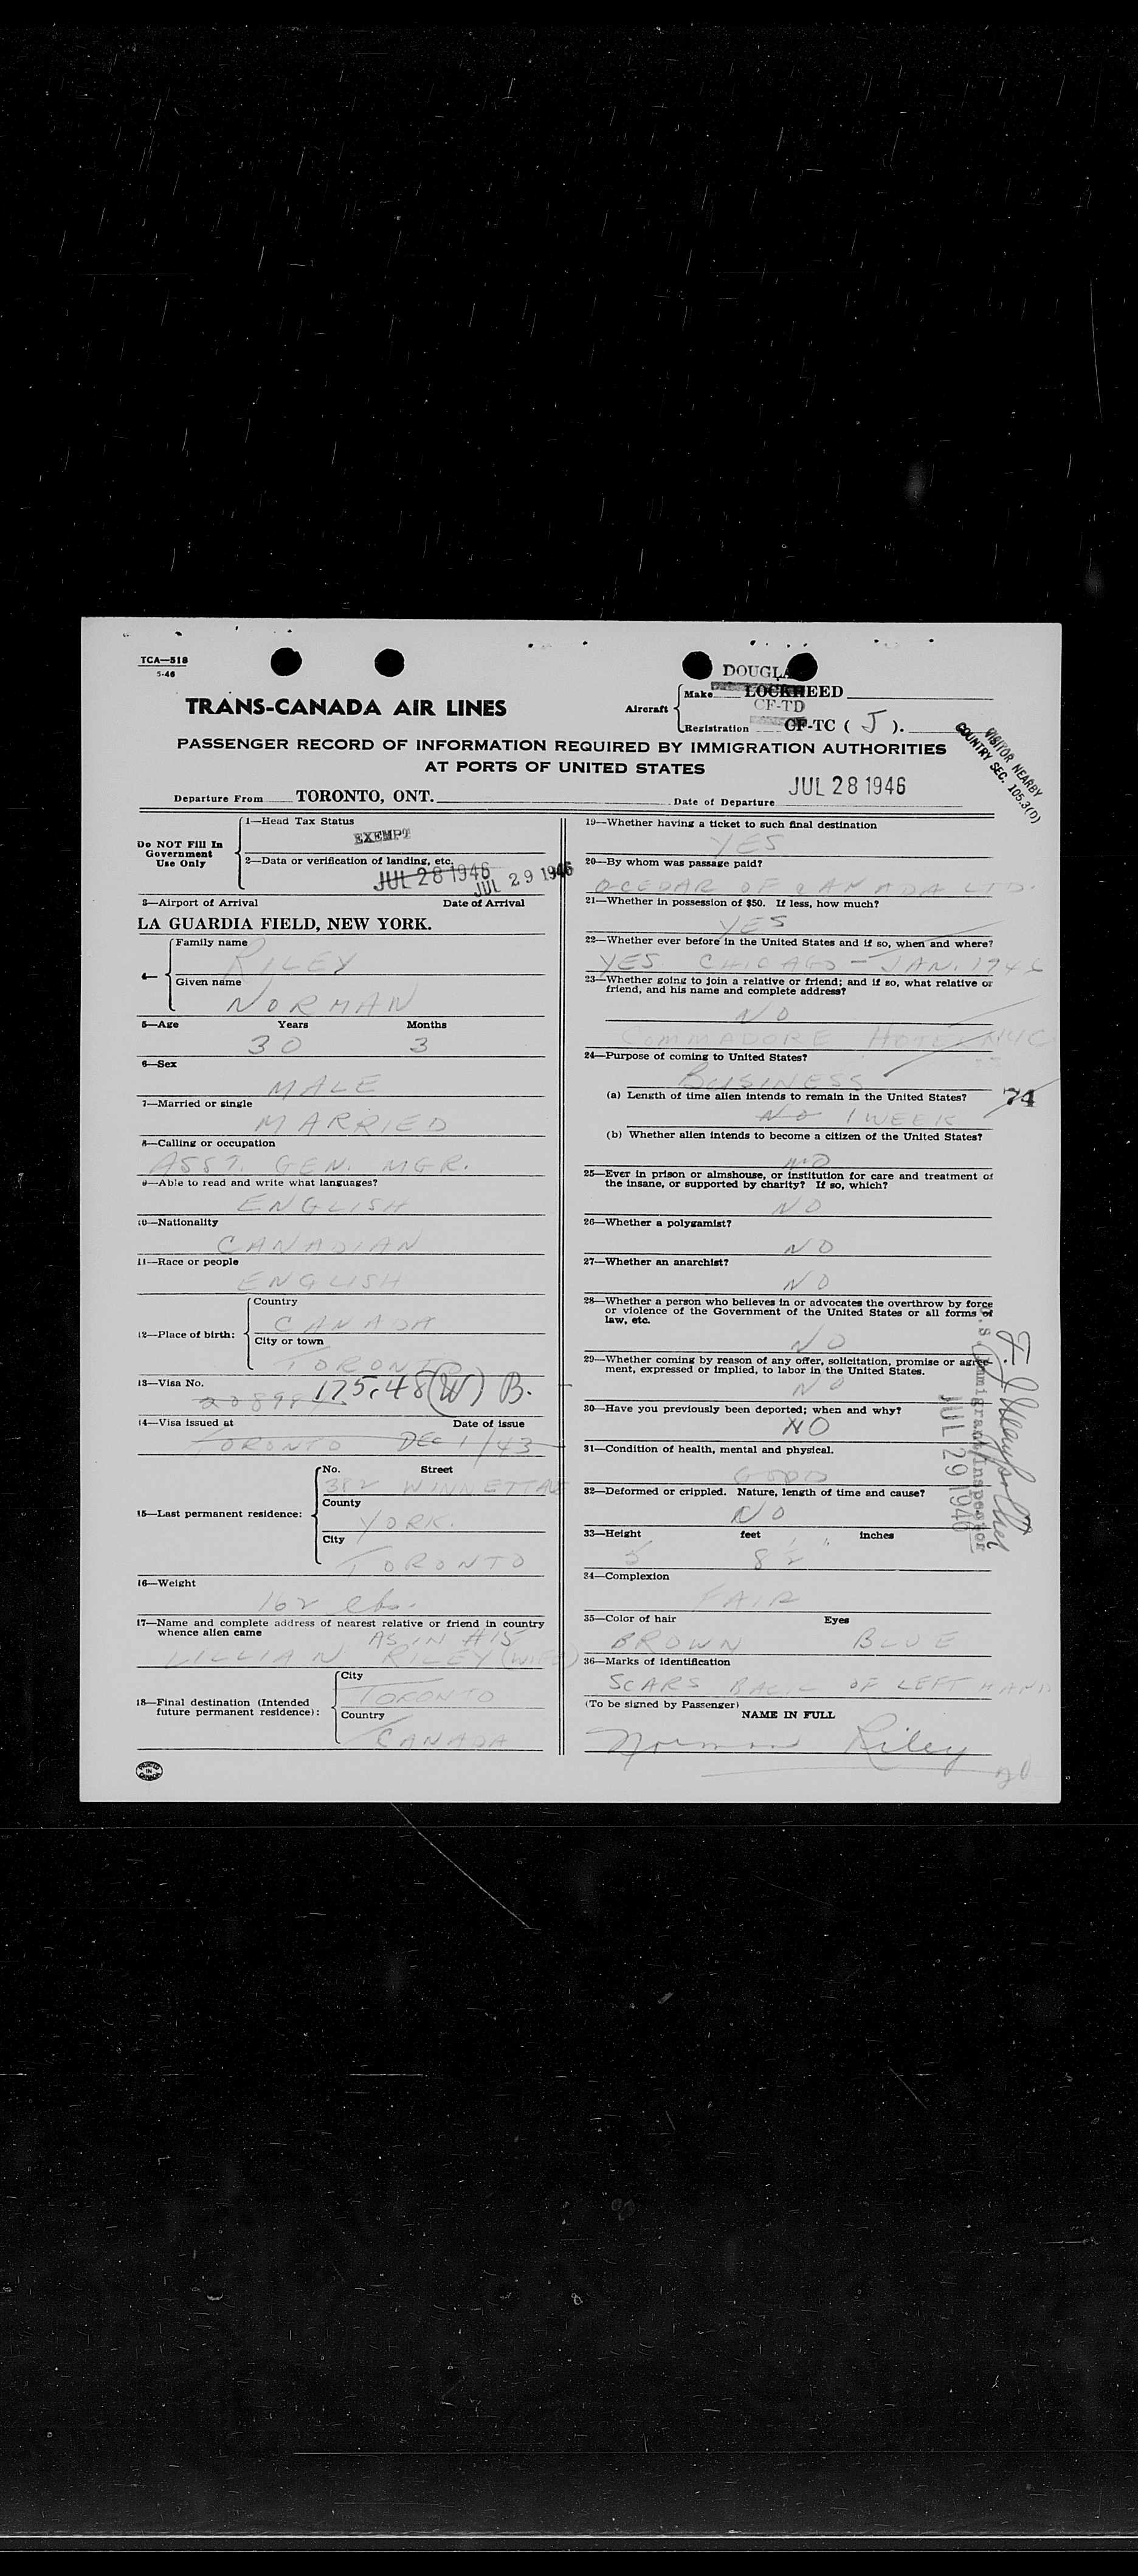 TCA—518
5-46
TRANS-CANADA AIR LINES
DOUGLA
Aircraft
Make LOCKHEED
CF-TD
Registration CF-TC ( J ).
PASSENGER RECORD OF INFORMATION REQUIRED BY IMMIGRATION AUTHORITIES
AT PORTS OF UNITED STATES
VISITOR NEARBY
COUNTRY SEC. 105.3(D)
Departure From TORONTO, ONT.
Date of Departure JUL 28 1946
Do NOT Fill In
Government
Use Only
1—Head Tax Status
EXEMPT
2—Data or verification of landing, etc.
JUL 28 1946
JUL 29 1946
3—Airport of Arrival Date of Arrival
LA GUARDIA FIELD, NEW YORK.
4—
Family name
RILEY
Given name
NORMAN
5—Age Years Months
30 3
6—Sex
MALE
7—Married or single
MARRIED
8—Calling or occupation
ASST. GEN. MGR.
9—Able to read and write what languages?
ENGLISH
10—Nationality
CANADIAN
11—Race or people
ENGLISH
12—Place of birth:
Country
CANADA
City or town
TORONTO
13—Visa No.
175.48(W) B.
14—Visa issued at Date of issue
TORONTO DEC 1/43
15—Last permanent residence:
No. Street
382 WINNETT AVE
County
YORK.
City
TORONTO
16—Weight
162 lbs.
17—Name and complete address of nearest relative or friend in country
whence alien came
AS IN #15
LILLIAN RILEY (WIFE)
18—Final destination (Intended
future permanent residence):
City
TORONTO
Country
CANADA
PRINTED
IN
CANADA
19—Whether having a ticket to such final destination
YES
20—By whom was passage paid?
OCEDAR OF CANADA LTD.
21—Whether in possession of $50. If less, how much?
YES
22—Whether ever before in the United States and if so, when and where?
YES CHICAGO — JAN. 1946
23—Whether going to join a relative or friend; and if so, what relative or
friend, and his name and complete address?
NO
COMMADORE HOTEL NYC
24—Purpose of coming to United States?
BUSINESS
(a) Length of time alien intends to remain in the United States?
74
NO 1 WEEK
(b) Whether alien intends to become a citizen of the United States?
NO
25—Ever in prison or almshouse, or institution for care and treatment of
the insane, or supported by charity? If so, which?
NO
26—Whether a polygamist?
NO
27—Whether an anarchist?
NO
28—Whether a person who believes in or advocates the overthrow by force
or violence of the Government of the United States or all forms of
law, etc.
NO
29—Whether coming by reason of any offer, solicitation, promise or agree-
ment, expressed or implied, to labor in the United States.
NO
30—Have you previously been deported; when and why?
NO
31—Condition of health, mental and physical.
GOOD
32—Deformed or crippled. Nature, length of time and cause?
NO
33—Height feet inches
5 8½
34—Complexion
FAIR
35—Color of hair Eyes
BROWN BLUE
36—Marks of identification
SCARS BACK OF LEFT HAND
(To be signed by Passenger)
NAME IN FULL
Norman Riley
U.S. Immigrant Inspector
JUL 29 1946